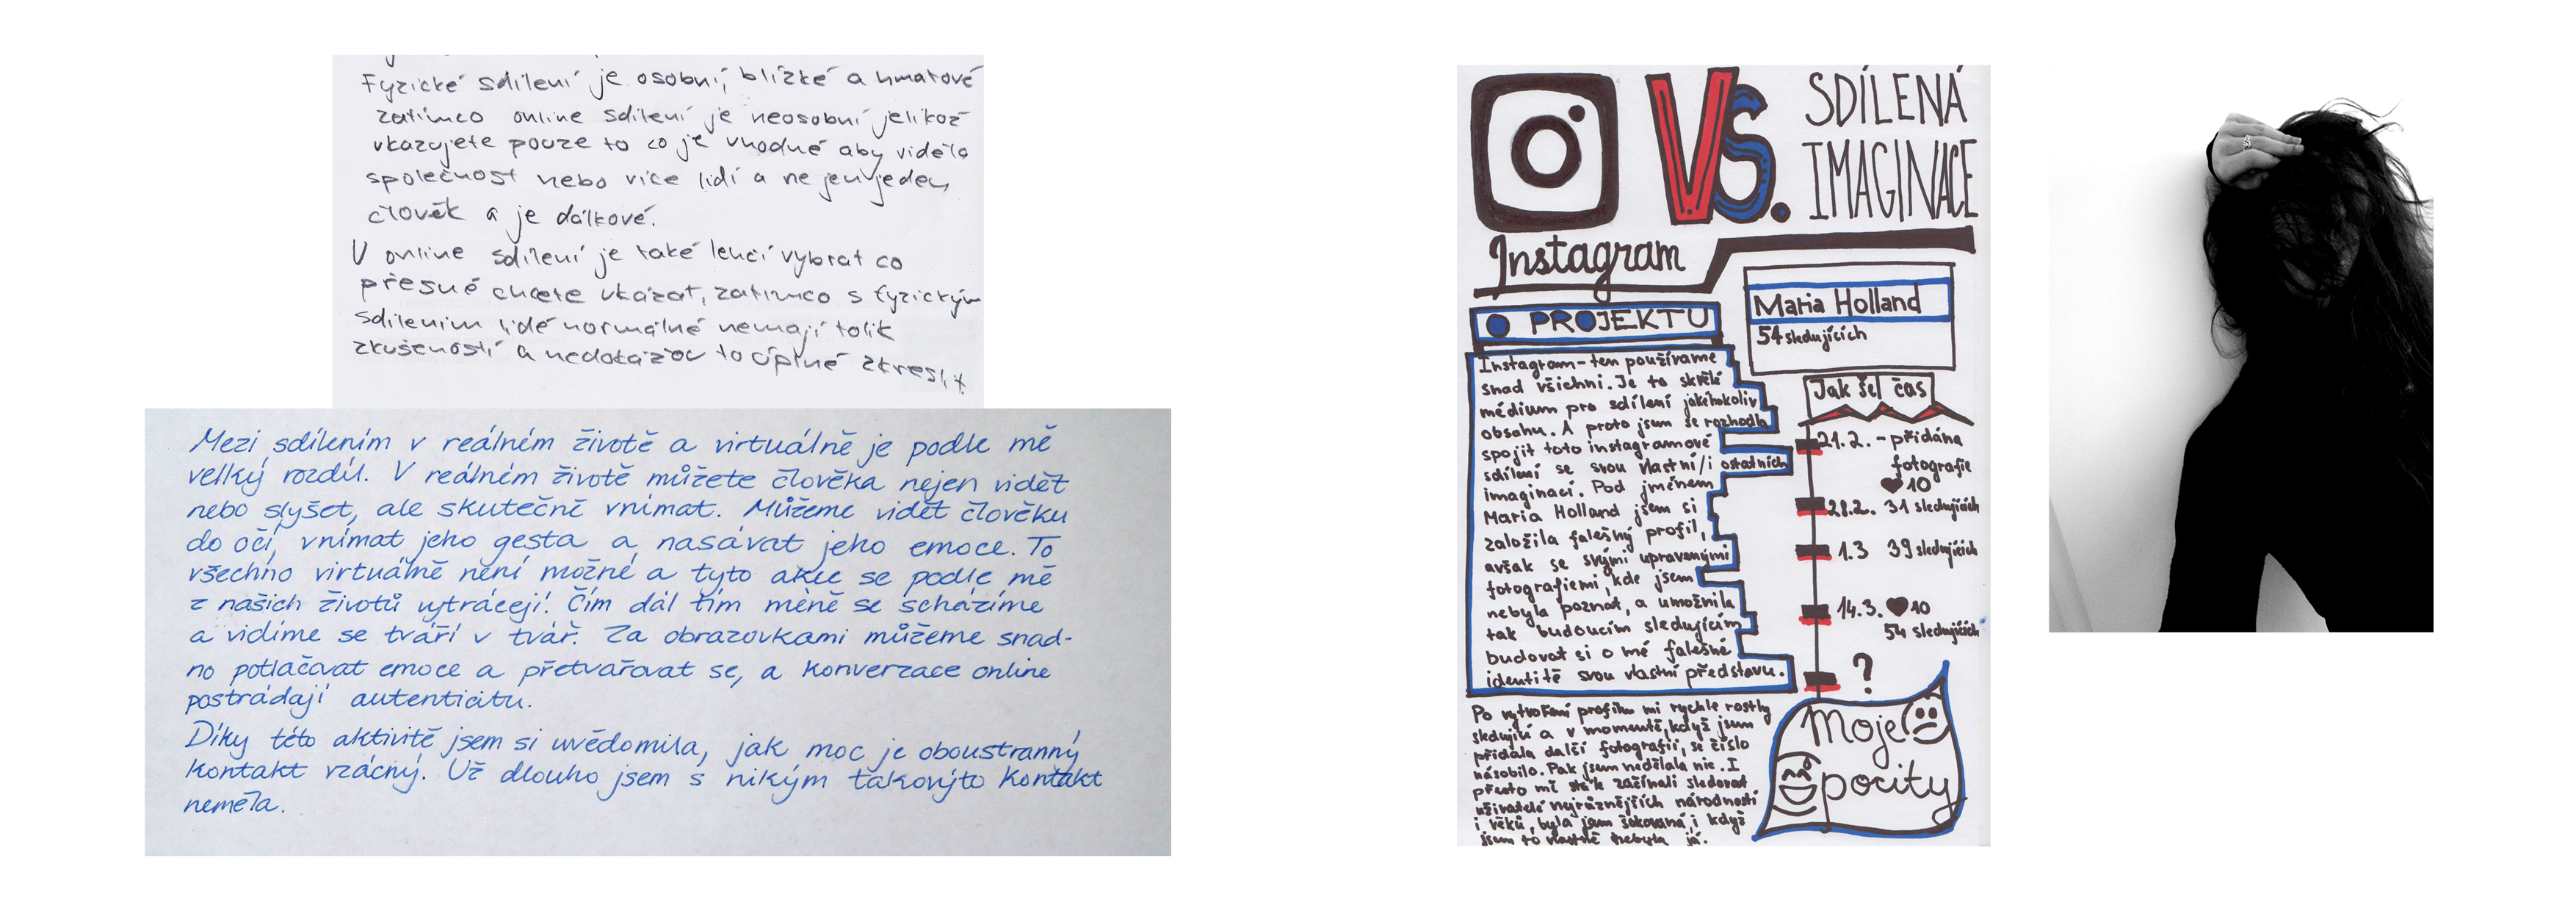 Fyzické sdílení je osobní, blízké a hmatové
zatímco online sdílení je neosobní jelikož
ukazujete pouze to co je vhodné aby viděla
společnost nebo více lidí a ne jen jeden
člověk a je dálkové.
V online sdílení je také lehčí vybrat co
přesně chcete ukázat, zatímco s fyzickým
sdílením lidé normálně nemají tolik
zkušeností a nedokážou to úplně zkreslit.
Mezi sdílením v reálném životě a virtuálně je podle mě
velký rozdíl. V reálném životě můžete člověka nejen vidět
nebo slyšet, ale skutečně vnímat. Můžeme vidět člověku
do očí, vnímat jeho gesta a nasávat jeho emoce. To
všechno virtuálně není možné a tyto akce se podle mě
z našich životů vytrácejí. Čím dál tím méně se scházíme
a vidíme se tváří v tvář. Za obrazovkami můžeme snad-
no potlačovat emoce a přetvařovat se, a konverzace online
postrádají autenticitu.
Díky této aktivitě jsem si uvědomila, jak moc je oboustranný
kontakt vzácný. Už dlouho jsem s nikým takovýto kontakt
neměla.
VS.
SDÍLENÁ
IMAGINACE
Instagram
O PROJEKTU
Instagram - ten používáme
snad všichni. Je to skvělé
médium pro sdílení jakéhokoliv
obsahu. A proto jsem se rozhodla
spojit toto instagramové
sdílení se svou vlastní/i ostatních
imaginací. Pod jménem
Maria Holland jsem si
založila falešný profil,
avšak se svými upravenými
fotografiemi, kde jsem
nebyla poznat, a umožnila
tak budoucím sledujícím
budovat si o mé falešné
identitě svou vlastní představu.
Po vytvoření profilu mi rychle rostly
sledující a v momentě, když jsem
přidala další fotografii, se číslo
násobilo. Pak jsem nedělala nic. I
přesto mě začínali sledovat
uživatelé nejrůznějších národností
i věků, byla jsem šokovaná, i když
jsem to vlastně nebyla já.
Maria Holland
54 sledujících
Jak šel čas
21.2. - přidána
fotografie
♥10
28.2. 31 sledujících
1.3 39 sledujících
14.3. ♥10
54 sledujících
?
Moje
pocity